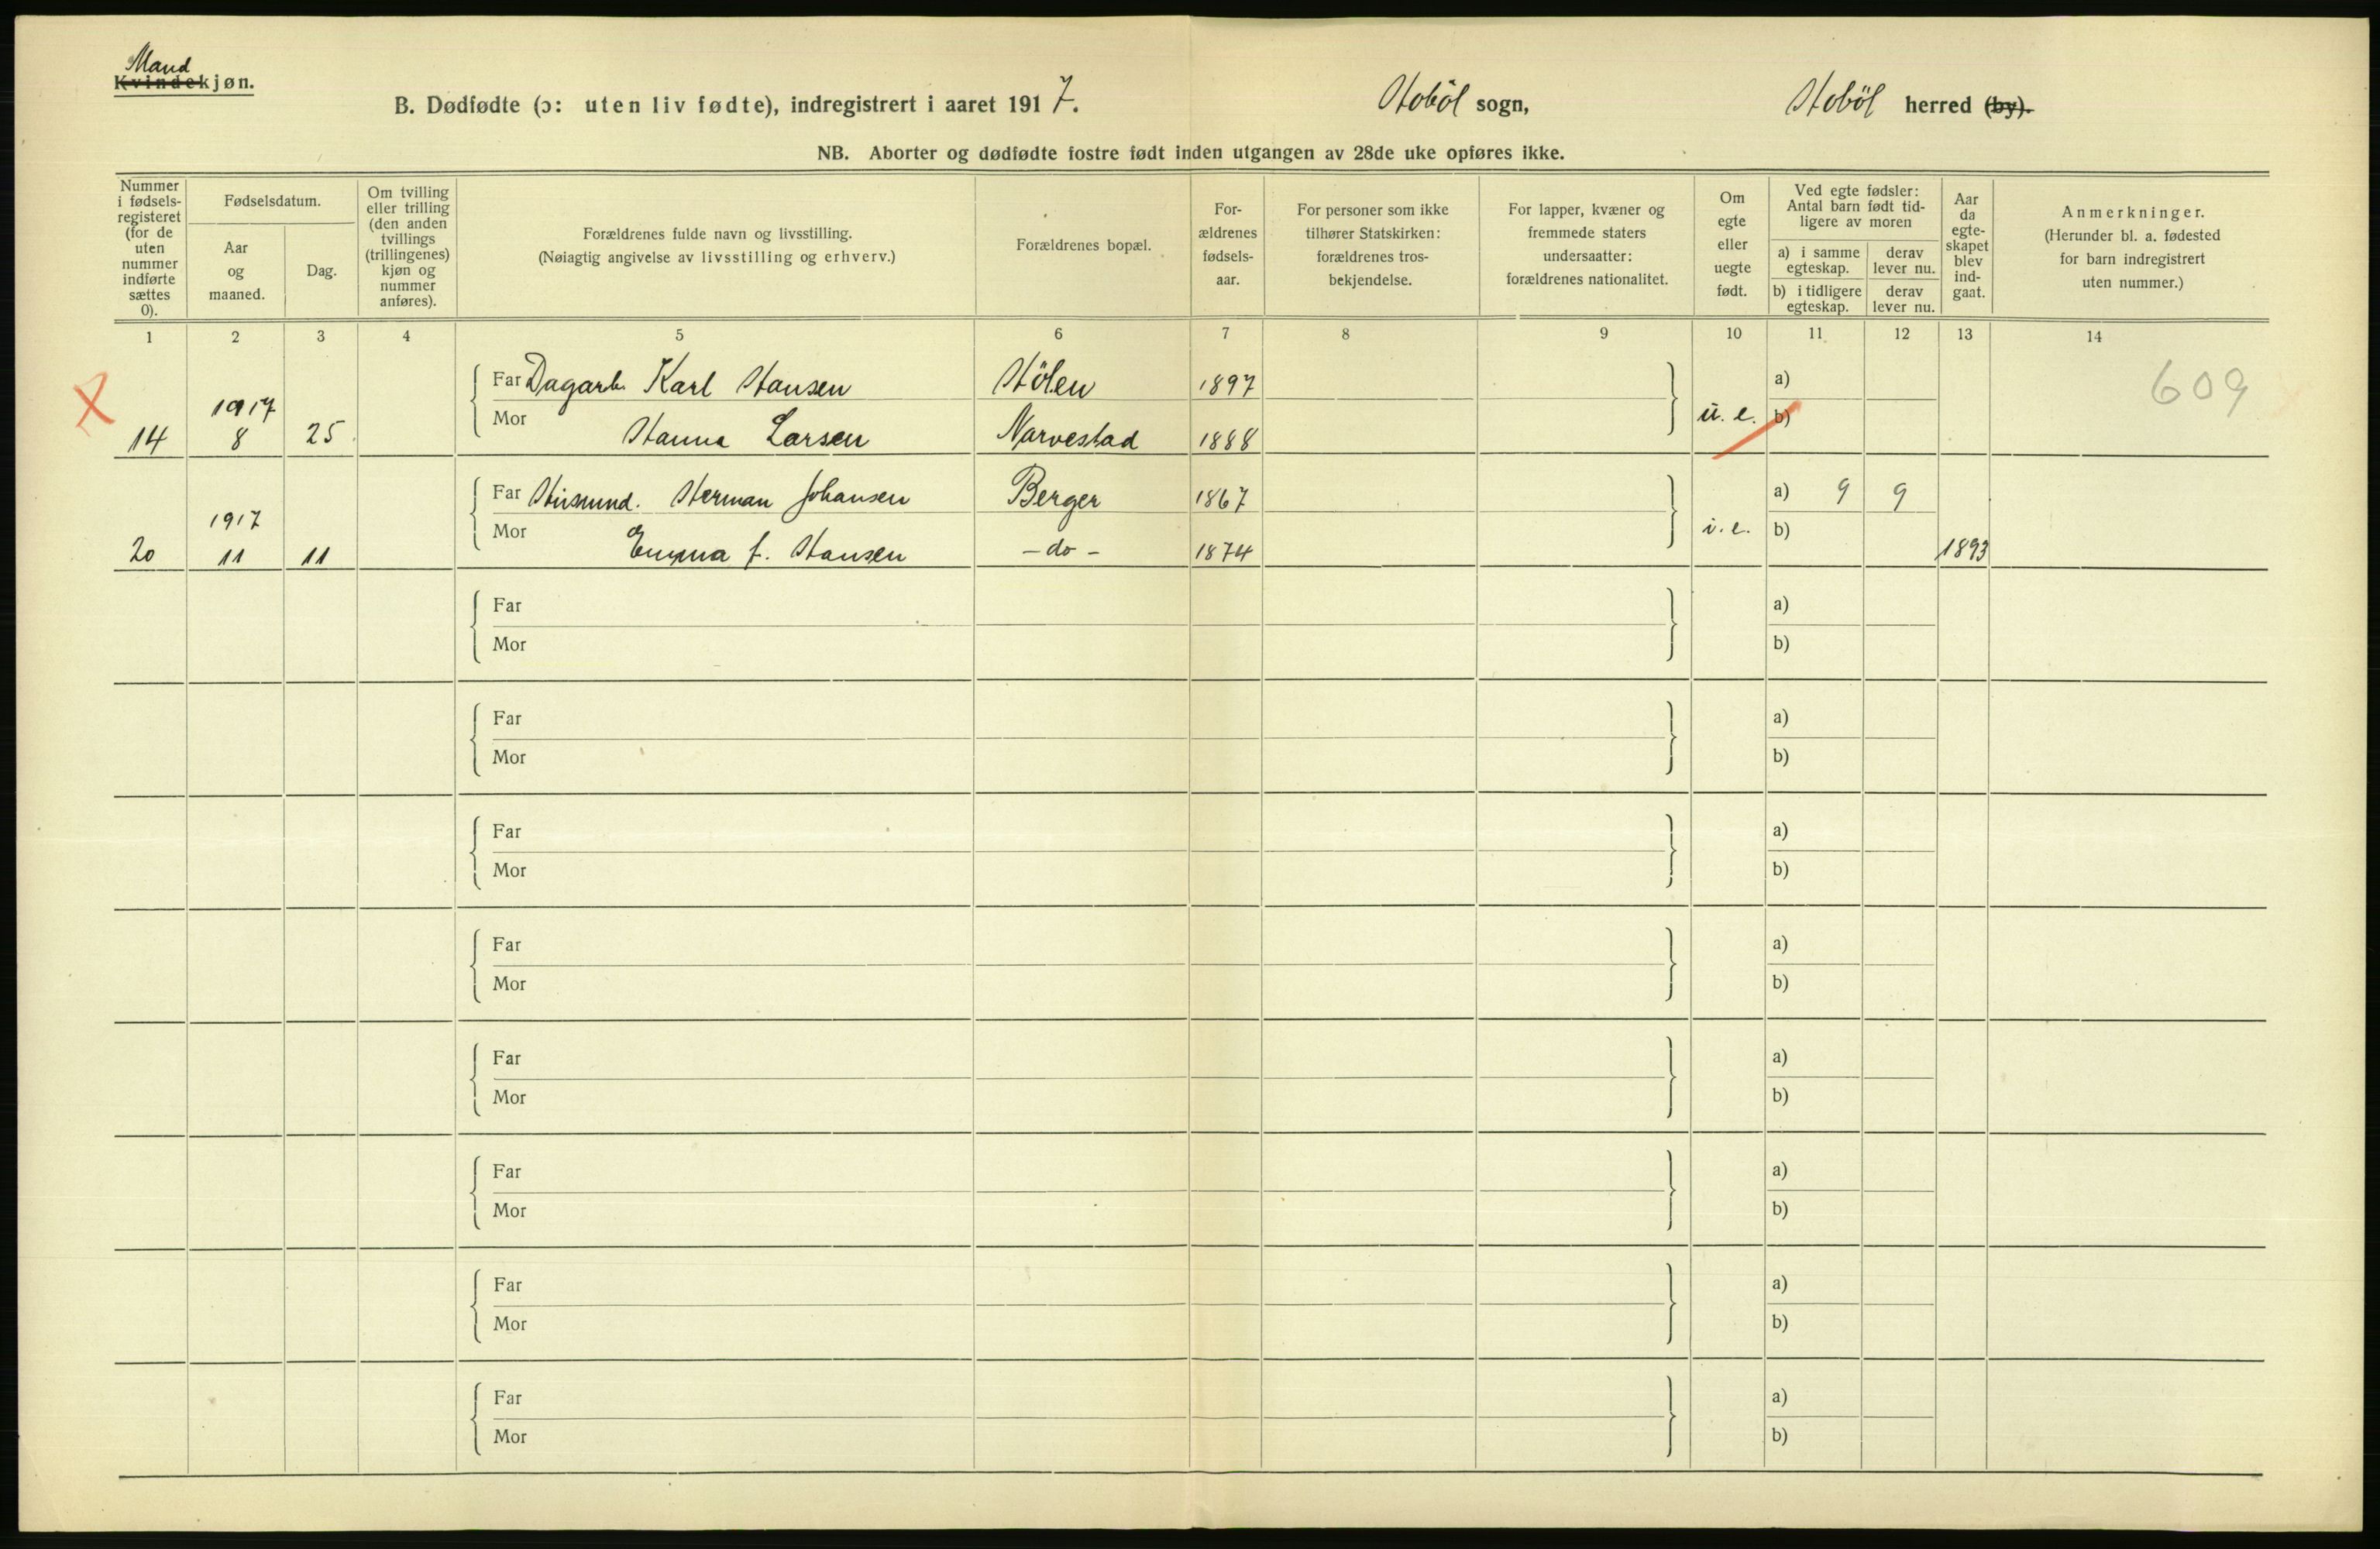 Mand
Kvindekjøn.
B. Dødfødte (ɔ: uten liv fødte), indregistrert i aaret 1917. Hobøl sogn, Hobøl herred (by).
NB. Aborter og dødfødte fostre født inden utgangen av 28de uke opføres ikke.
Nummer i fødsels-registeret (for de uten nummer indførte sættes 0).
Fødselsdatum.
Aar og maaned.
Dag.
Om tvilling eller trilling (den anden tvillings (trillingenes) kjøn og nummer anføres).
Forældrenes fulde navn og livsstilling.
(Nøiagtig angivelse av livsstilling og erhverv.)
Forældrenes bopæl.
For-ældrenes fødsels-aar.
For personer som ikke tilhører Statskirken: forældrenes tros-bekjendelse.
For lapper, kvæner og fremmede staters undersaatter: forældrenes nationalitet.
Om egte eller uegte født.
Ved egte fødsler: Antal barn født tid-ligere av moren
a) i samme egteskap.
derav lever nu.
b) i tidligere egteskap.
derav lever nu.
Aar da egte-skapet blev ind-gaat.
Anmerkninger.
(Herunder bl. a. fødested for barn indregistrert uten nummer.)
1 2 3 4 5 6 7 8 9 10 11 12 13 14
Far Dagarb. Karl Hansen Hölen 1897 a) 609
1917
14 8 25 Mor Hanna Larsen Narvestad 1888 u. e. b)
Far Husmand. Herman Johansen Berger 1867 a) 9 9
1917
20 11 11 Mor Emma f. Hansen – do – 1874 i. e. b) 1893
Far a)
Mor b)
Far a)
Mor b)
Far a)
Mor b)
Far a)
Mor b)
Far a)
Mor b)
Far a)
Mor b)
Far a)
Mor b)
Far a)
Mor b)